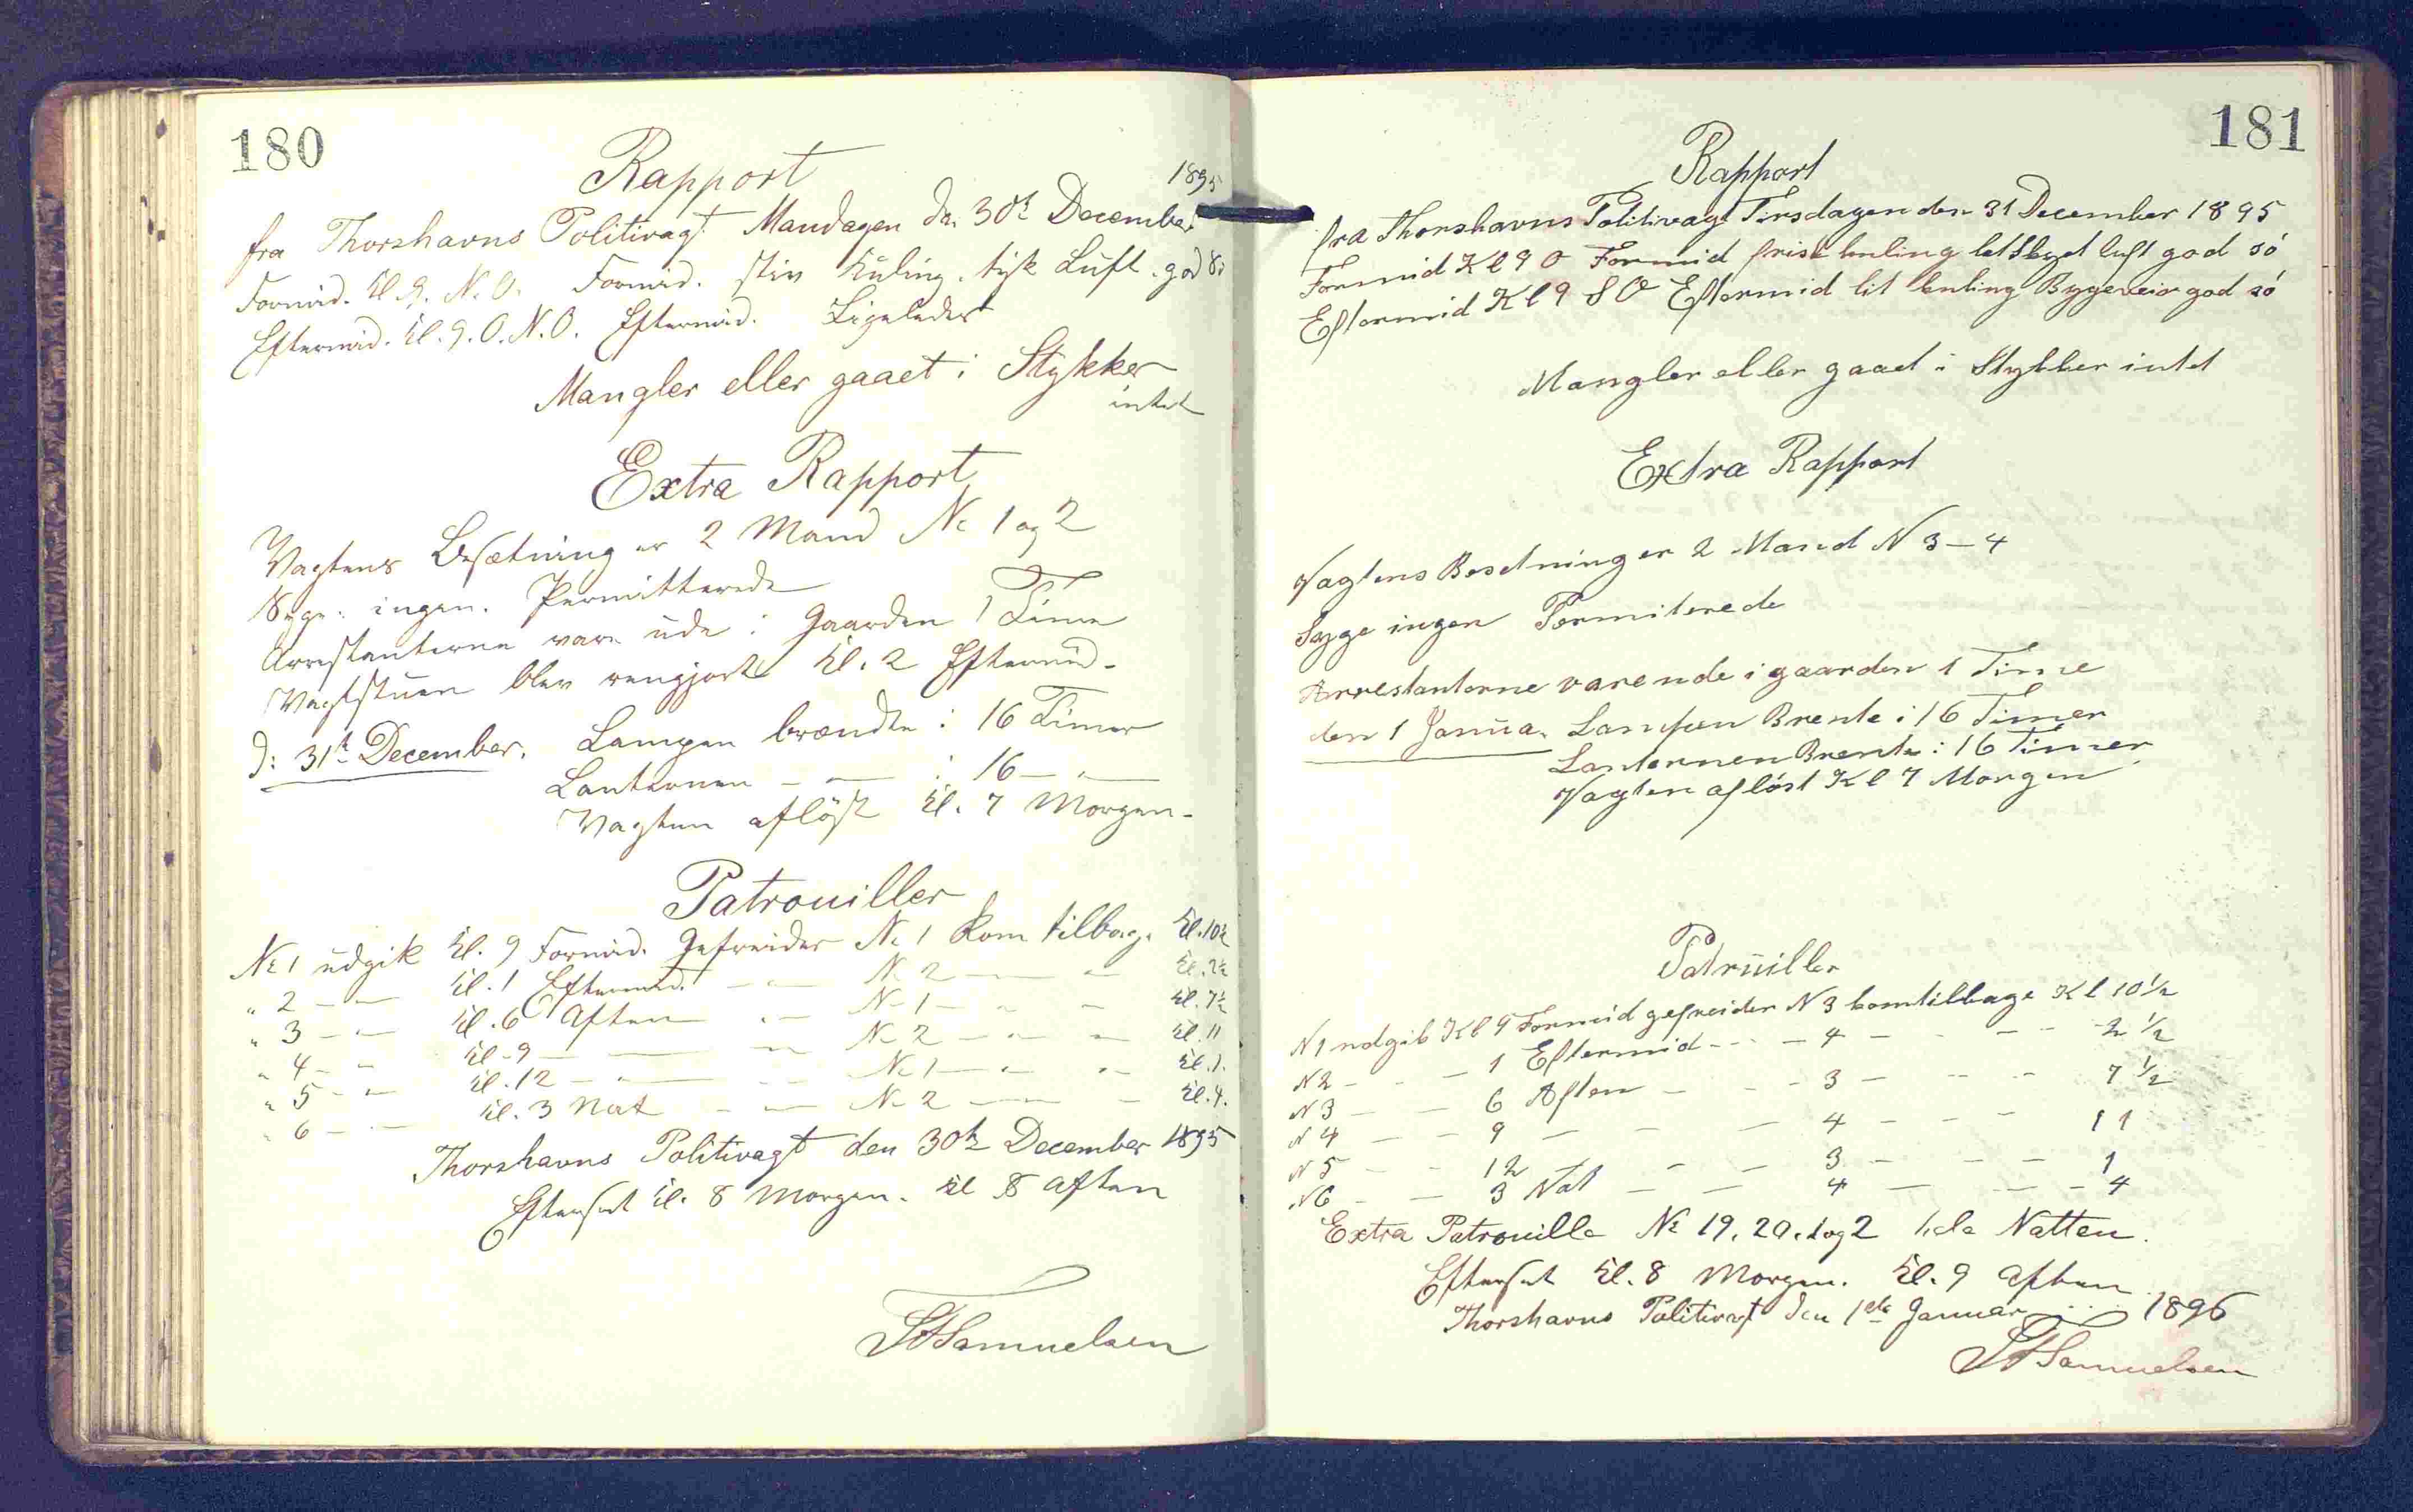 180
Rapport
1895
fra Thorshavns Politivagt Mandagen d. 30te December
Formid. Kl. 9. N.O. Formid. stiv Kuling. tyk Luft. god Sö
Eftermid. Kl. 9. O.N.O. Eftermid. Ligeledes
Mangler eller gaaet i Stykker
intet
Extra Rapport
Vagtens Besætning er 2 Mand No 1 og 2
Syge: ingen. Permitterede
Arrestanterne vare ude i Gaarden 1 Time
Vagtstuen blev rengjort Kl. 2 Eftermid.
d: 31te December. Lampen brændte i 16 Timer
Lanternen - — i 16 — —
Vagten aflöst Kl. 7 Morgen.
Patrouiller
No 1 udgik Kl. 9 Formid. Gefreider No 1 kom tilbage Kl. 10½
" 2 - — Kl. 1 Eftermid. - — No 2 — — Kl. 2½
" 3 - — Kl. 6 Aften - — No 1 — - - Kl. 7½
" 4 - - Kl. 9 — — — No 2 — — — Kl. 11
" 5 - — Kl. 12 — — - - No 1 — — - — Kl. 1.
" 6 - — Kl. 3 Nat - — No 2 — — - Kl. 4.
Thorshavns Politivagt den 30te December 1895
Efterset Kl. 8 Morgen. Kl 8 Aften
Samuelsen
181
Rapport
fra Thorshavns Politivagt Tirsdagen den 31 December 1895
Formid Kl 9 O Formid frisk kuling letskyet luft god só
Eftermid Kl 9 S O Eftermid lit kuling Bygeveir god só
Mangler eller gaaet i Stykker intet
Extra Rapport
Vagtens Besetning er 2 Mand N 3 – 4
Syge ingen Permiterede
Arrestanterne vare ude i gaarden 1 Time
den 1 Janua. Lampen Brente i 16 Timer
Lanternen Brente i 16 Timer
Vagten aflöst Kl 7 Morgen
Patrüiller
N 1 udgik Kl 9 Formid gefreider N 3 kom tilbage Kl 10½
N 2 - - - 1 Eftermid - - - - 4 - - - - 2½
N 3 — — 6 Aften - - - 3 — - - - 7½
N 4 — — 9 — — — 4 - - - 11
N 5 - - 12 - - 3 - - - 1
N 6 — — 3 Nat — — 4 — — - 4
Extra Patrouille No 19. 20. 1 og 2 hele Natten.
Efterset Kl. 8 Morgen. Kl. 9 Aften.
Thorshavns Politivagt den 1ste Januar 1896
Samuelsen